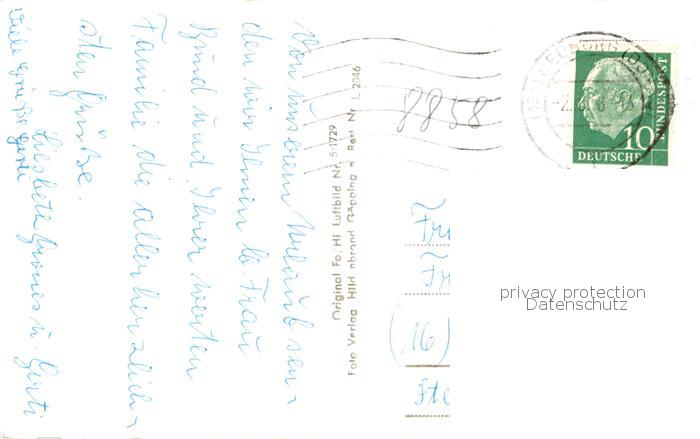 Von unserem Urlaub sen-
den wir Ihnen lb. Frau
Bund und Ihrer werten
Familie die allerherzlich-
sten Grüße.
Liesbeth u. Gerti
Viele Grüße Gerti
Original Fo/Hi Luftbild Nr. 5-1729
Foto Verlag Hild nbrand Göpping n Best Nr L. 2046
8858
10
DEUTSCHE
BUNDESPOST
Fr
(16)
Ste
privacy protection
Datenschutz